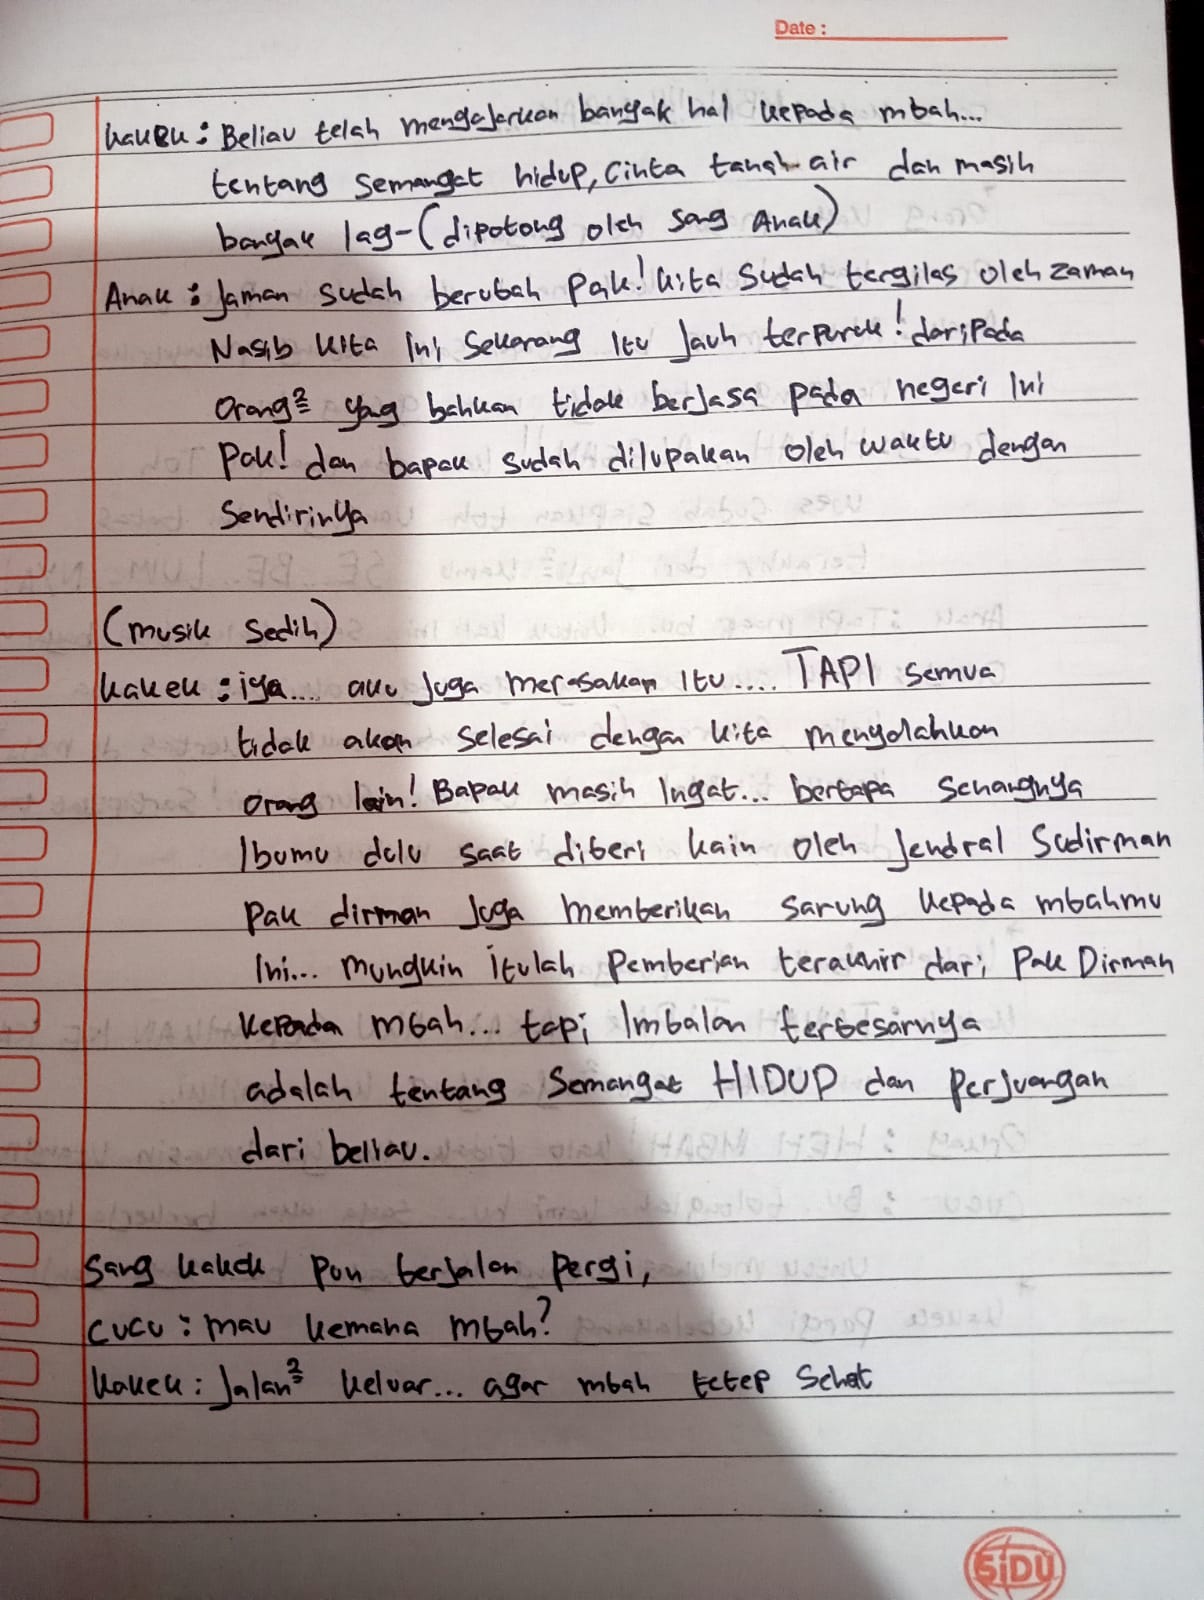 Date :
Kakek : Beliau telah mengajarkan banyak hal kepada mbah...
tentang semangat hidup, Cinta tanah air dan masih
banyak lag-(dipotong oleh sang Anak)
Anak : Jaman sudah berubah pak! kita sudah tergilas oleh zaman
Nasib kita Ini sekarang Itu Jauh terpuruk! daripada
orang² yang bahkan tidak berjasa pada negeri Ini
Pak! dan bapak sudah dilupakan oleh waktu dengan
Sendirinya
(musik sedih)
kakek : iya.... aku Juga merasakan Itu.... TAPI semua
tidak akan selesai dengan kita menyalahkan
orang lain! Bapak masih Ingat... bertapa senangnya
Ibumu dulu saat diberi kain oleh Jendral Sudirman
pak dirman Juga memberikan sarung kepada mbahmu
Ini... mungkin itulah Pemberian terakhir dari Pak Dirman
kepada mbah... tapi Imbalan terbesarnya
adalah tentang Semangat HIDUP dan perjuangan
dari beliau.
Sang kakek pun berjalan pergi,
CUCU : mau kemana mbah?
kakek : Jalan² keluar... agar mbah tetep Sehat
SiDU